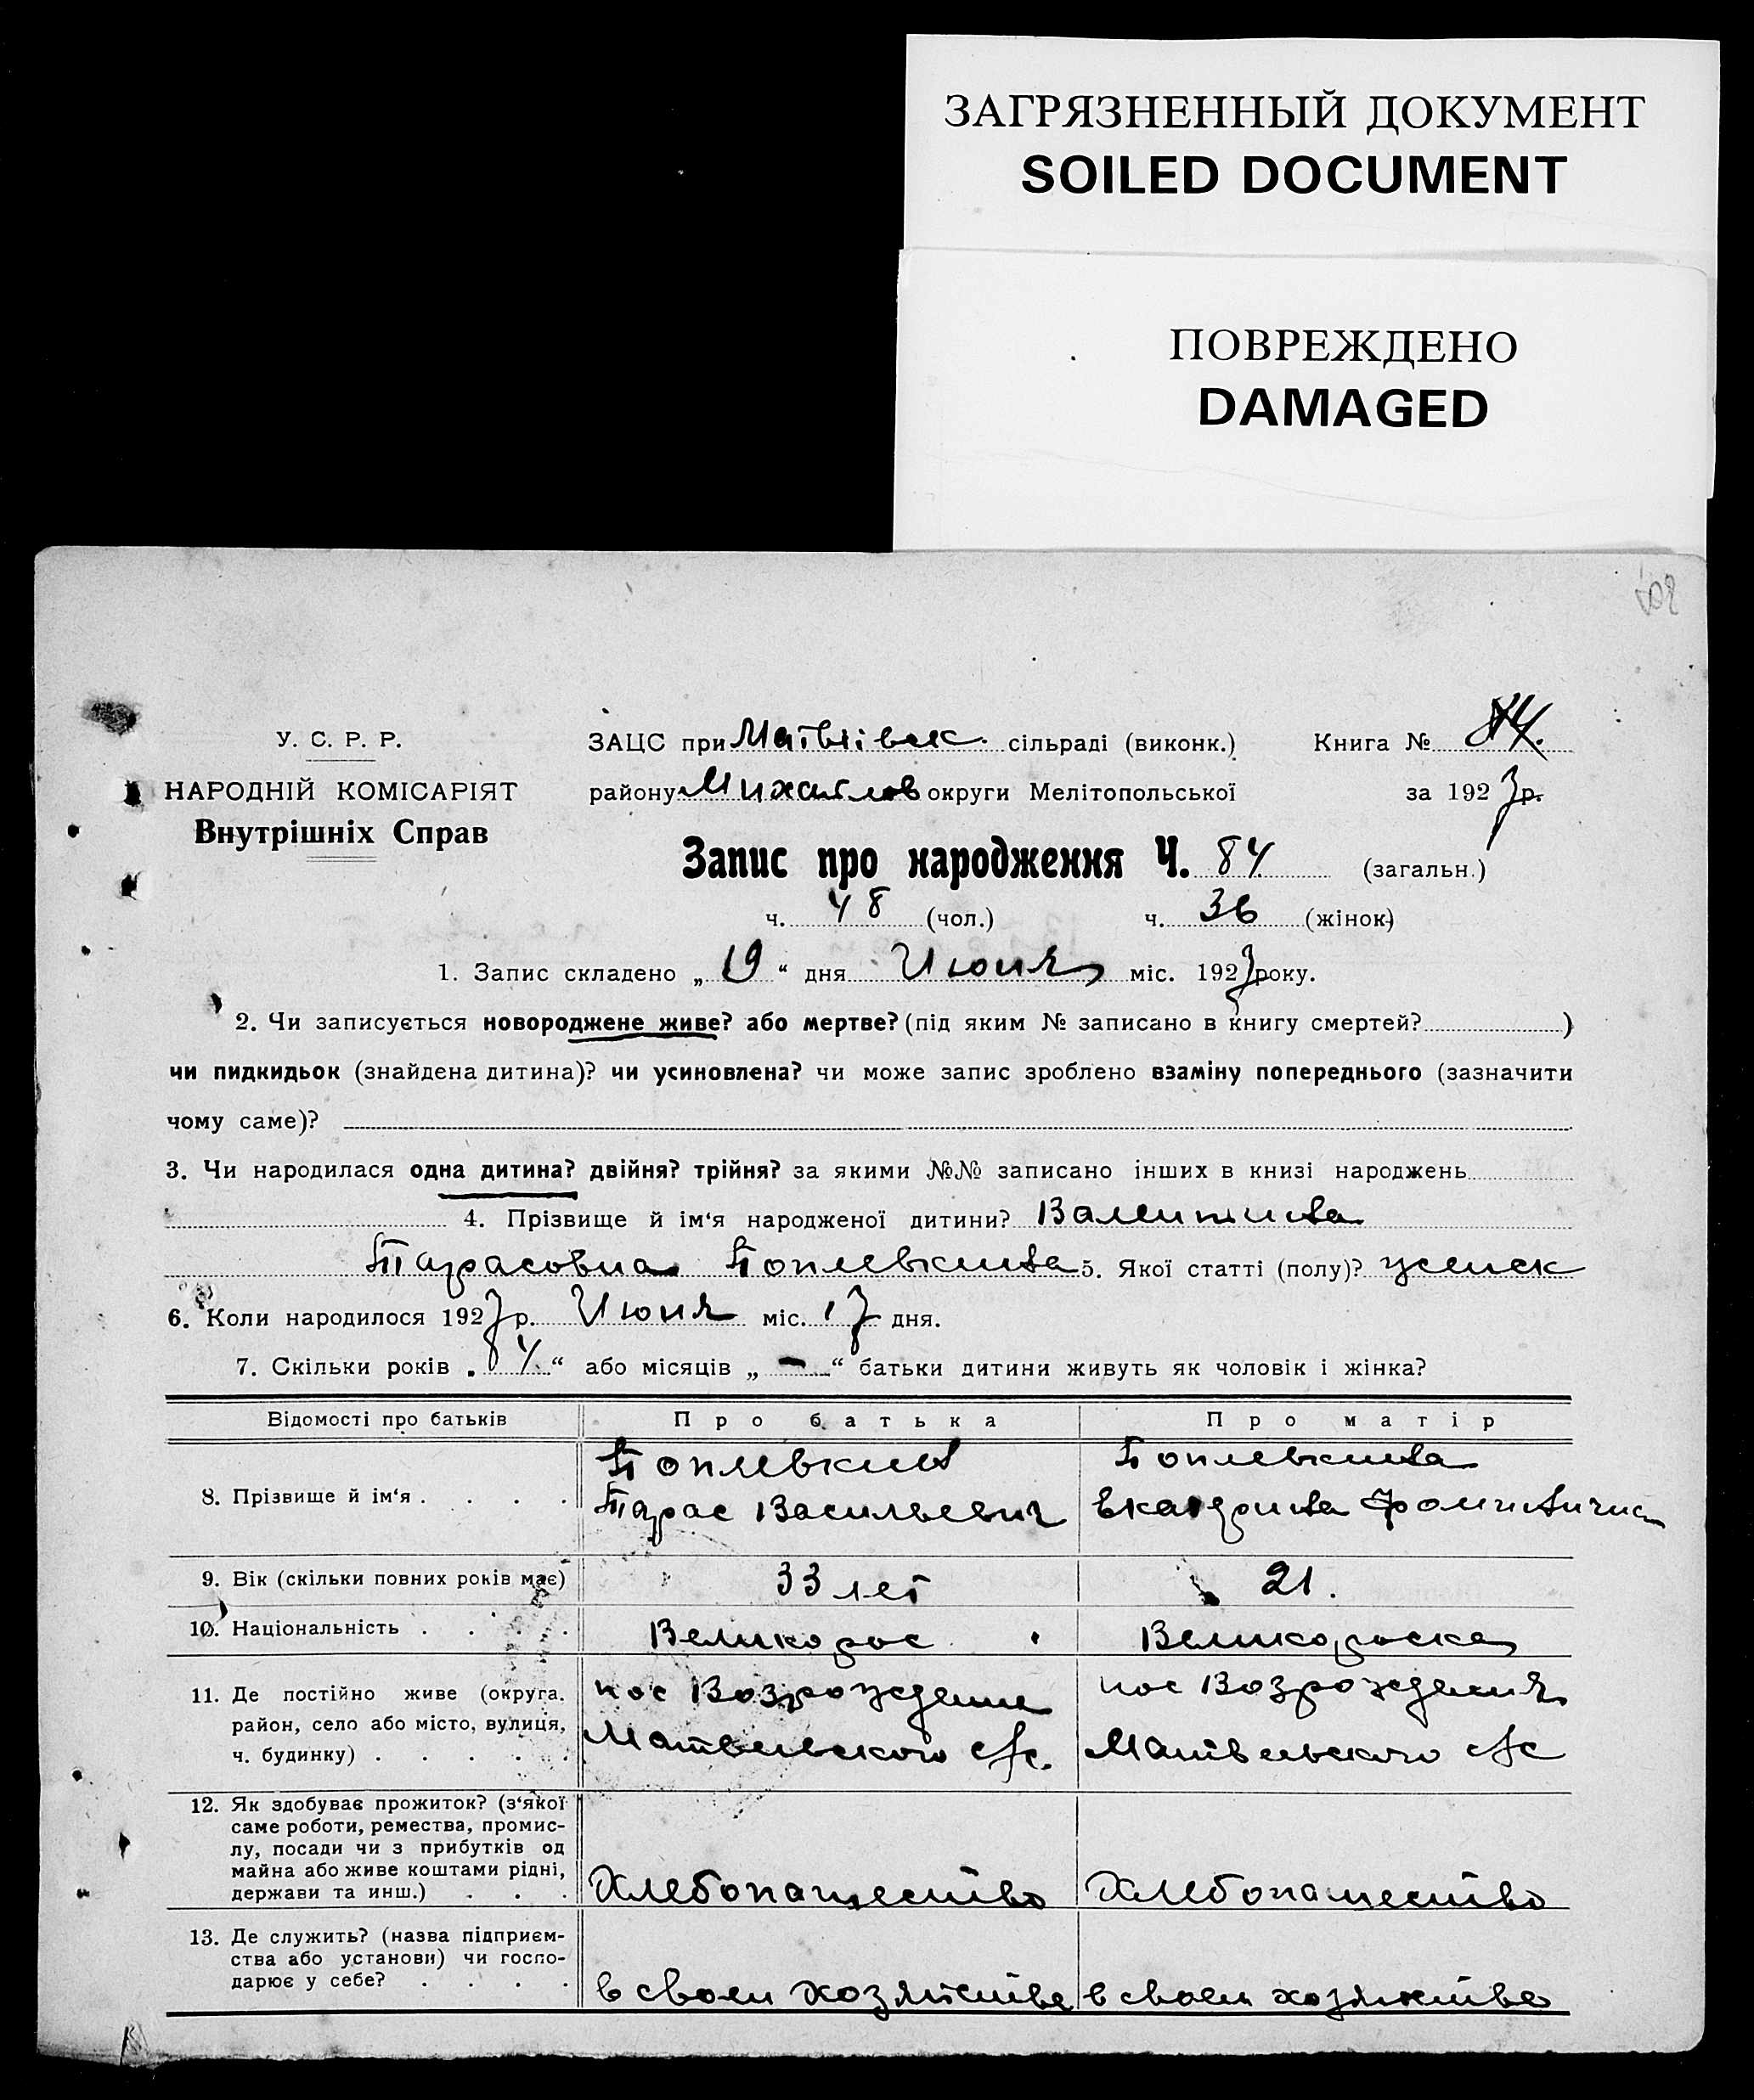 ЗАГРЯЗНЕННЫЙ ДОКУМЕНТ
SOILED DOCUMENT
ПОВРЕЖДЕНО
DAMAGED
У. С. Р. Р.
НАРОДНІЙ КОМІСАРІЯТ
Внутрішніх Справ
ЗАЦС при Матвіївск. сільраді (виконк.) Книга №
району Михайлов округи Мелітопольської за 1927 р.
Запис про народження Ч. 84 (загальн.)
ч. 48 (чол.) ч. 36 (жінок)
1. Запис складено „ 19 “ дня Июня міс. 1927 року.
2. Чи записується новороджене живе? або мертве? (під яким № записано в книгу смертей? )
чи пидкидьок (знайдена дитина)? чи усиновлена? чи може запис зроблено взаміну попереднього (зазначити
чому саме)?
3. Чи народилася одна дитина? двійня? трійня? за якими №№ записано інших в книзі народжень
4. Прізвище й ім‘я народженої дитини? Валентина
Тарасовна Топлевкина 5. Якої статті (полу)? женск
6. Коли народилося 1927 р. Июня міс. 17 дня.
7. Скільки років „ “ або місяців „ — “ батьки дитини живуть як чоловік і жінка?
Відомості про батьків Про батька Про матір
8. Прізвище й ім‘я . . . .
Топлевкин
Тарас Васильевич
Топлевкина
Екатерина
9. Вік (скільки повних років має) 33 лет 21.
10. Національність . . . . Великорос Великороска
11. Де постійно живе (округа,
район, село або місто, вулиця,
ч. будинку) . . . . .
пос Возрождение
Матвеевского с/с.
пос Возрождения
Матвеевского с/с
12. Як здобуває прожиток? (з‘якої
саме роботи, ремества, промис-
лу, посади чи з прибутків од
майна або живе коштами рідні,
держави та инш.) . . .
Хлебопашество Хлебопашество
13. Де служить? (назва підприєм-
ства або установи) чи госпо-
дарює у себе? . . . .
в своем хозяйстве в своем хозяйстве